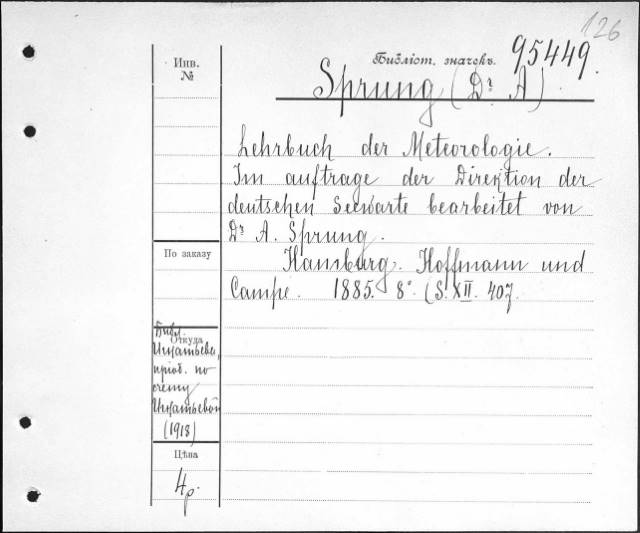 126
Библіот. значекъ. 95449.
Инв.
№
Sprung (Dr. A)
Lehrbuch der Meteorologie.
Im auftrage der Direktion der
deutschen Seewarte bearbeitet von
Dr. A. Sprung.
По заказу
Hamburg. Hoffmann und
Campe. 1885. 8°. (S. XII. 407.
Откуда
Библ.
Игнатьева,
пріоб. по
счету
Игнатьевой
(1918)
Цѣна
4р.